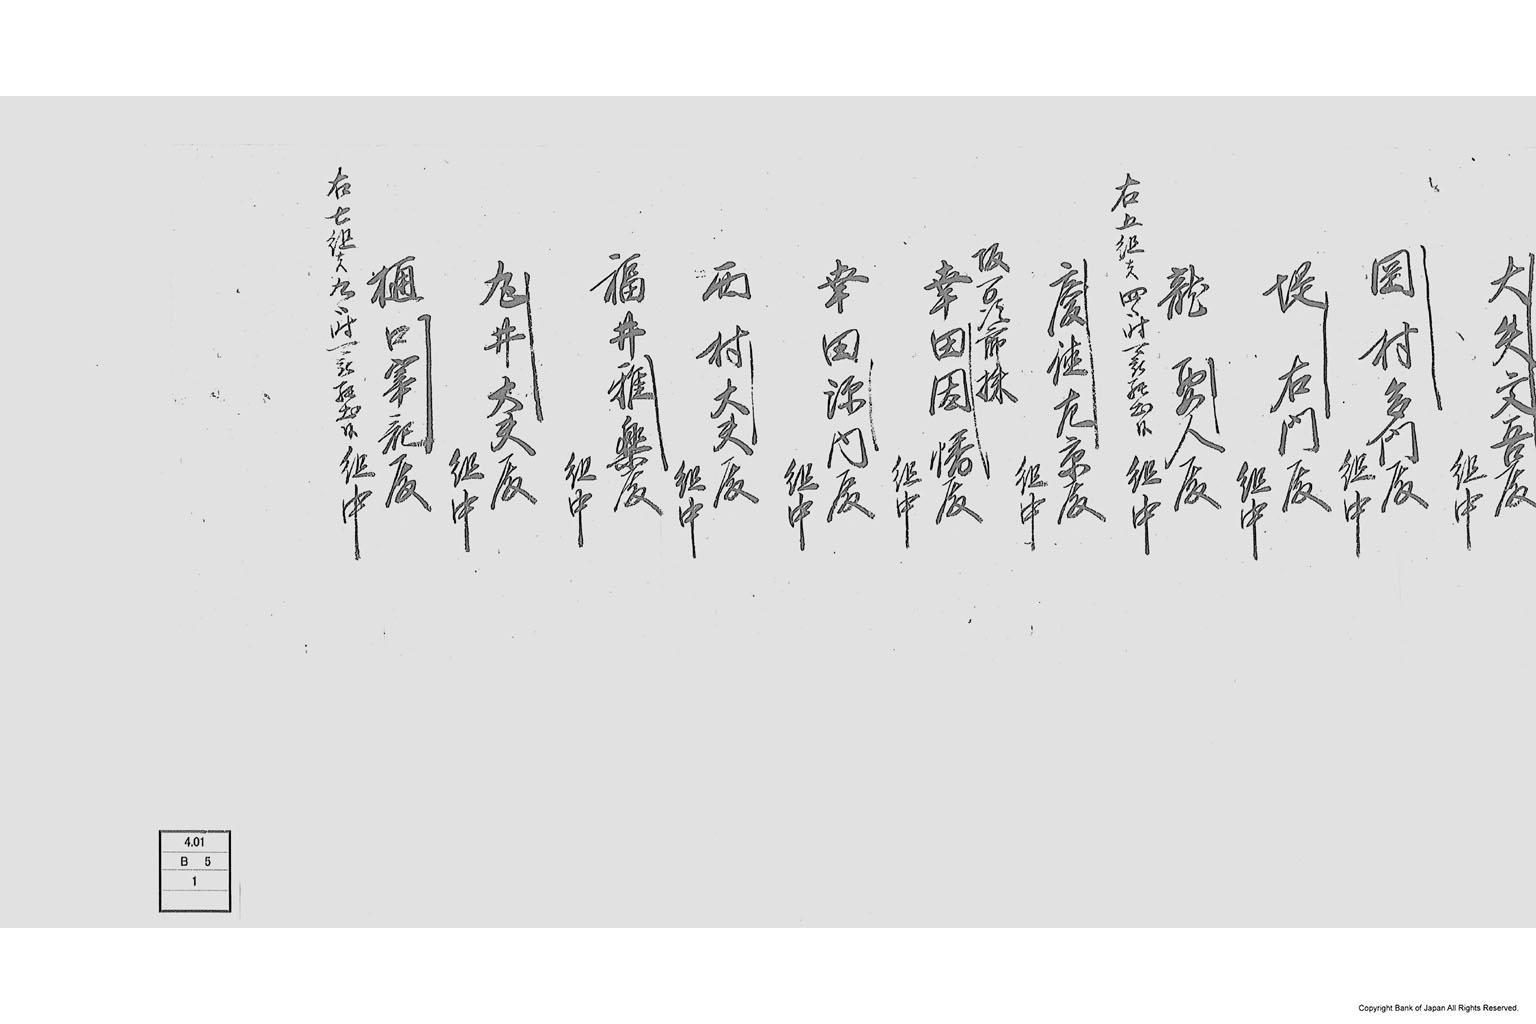 大矢文吾殿
組中
岡村多門殿
組中
堤右門殿
組中
龍聖人殿
組中
右五組者四ツ時
慶徳左京殿
組中
幸田因幡殿
組中
幸田源内殿
組中
西村大夫殿
組中
福井雅楽殿
組中
丸井大夫殿
組中
樋口宰記殿
組中
右七組者九ツ時
4.01
B 5
1
Copyright Bank of Japan All Rights Reserved.